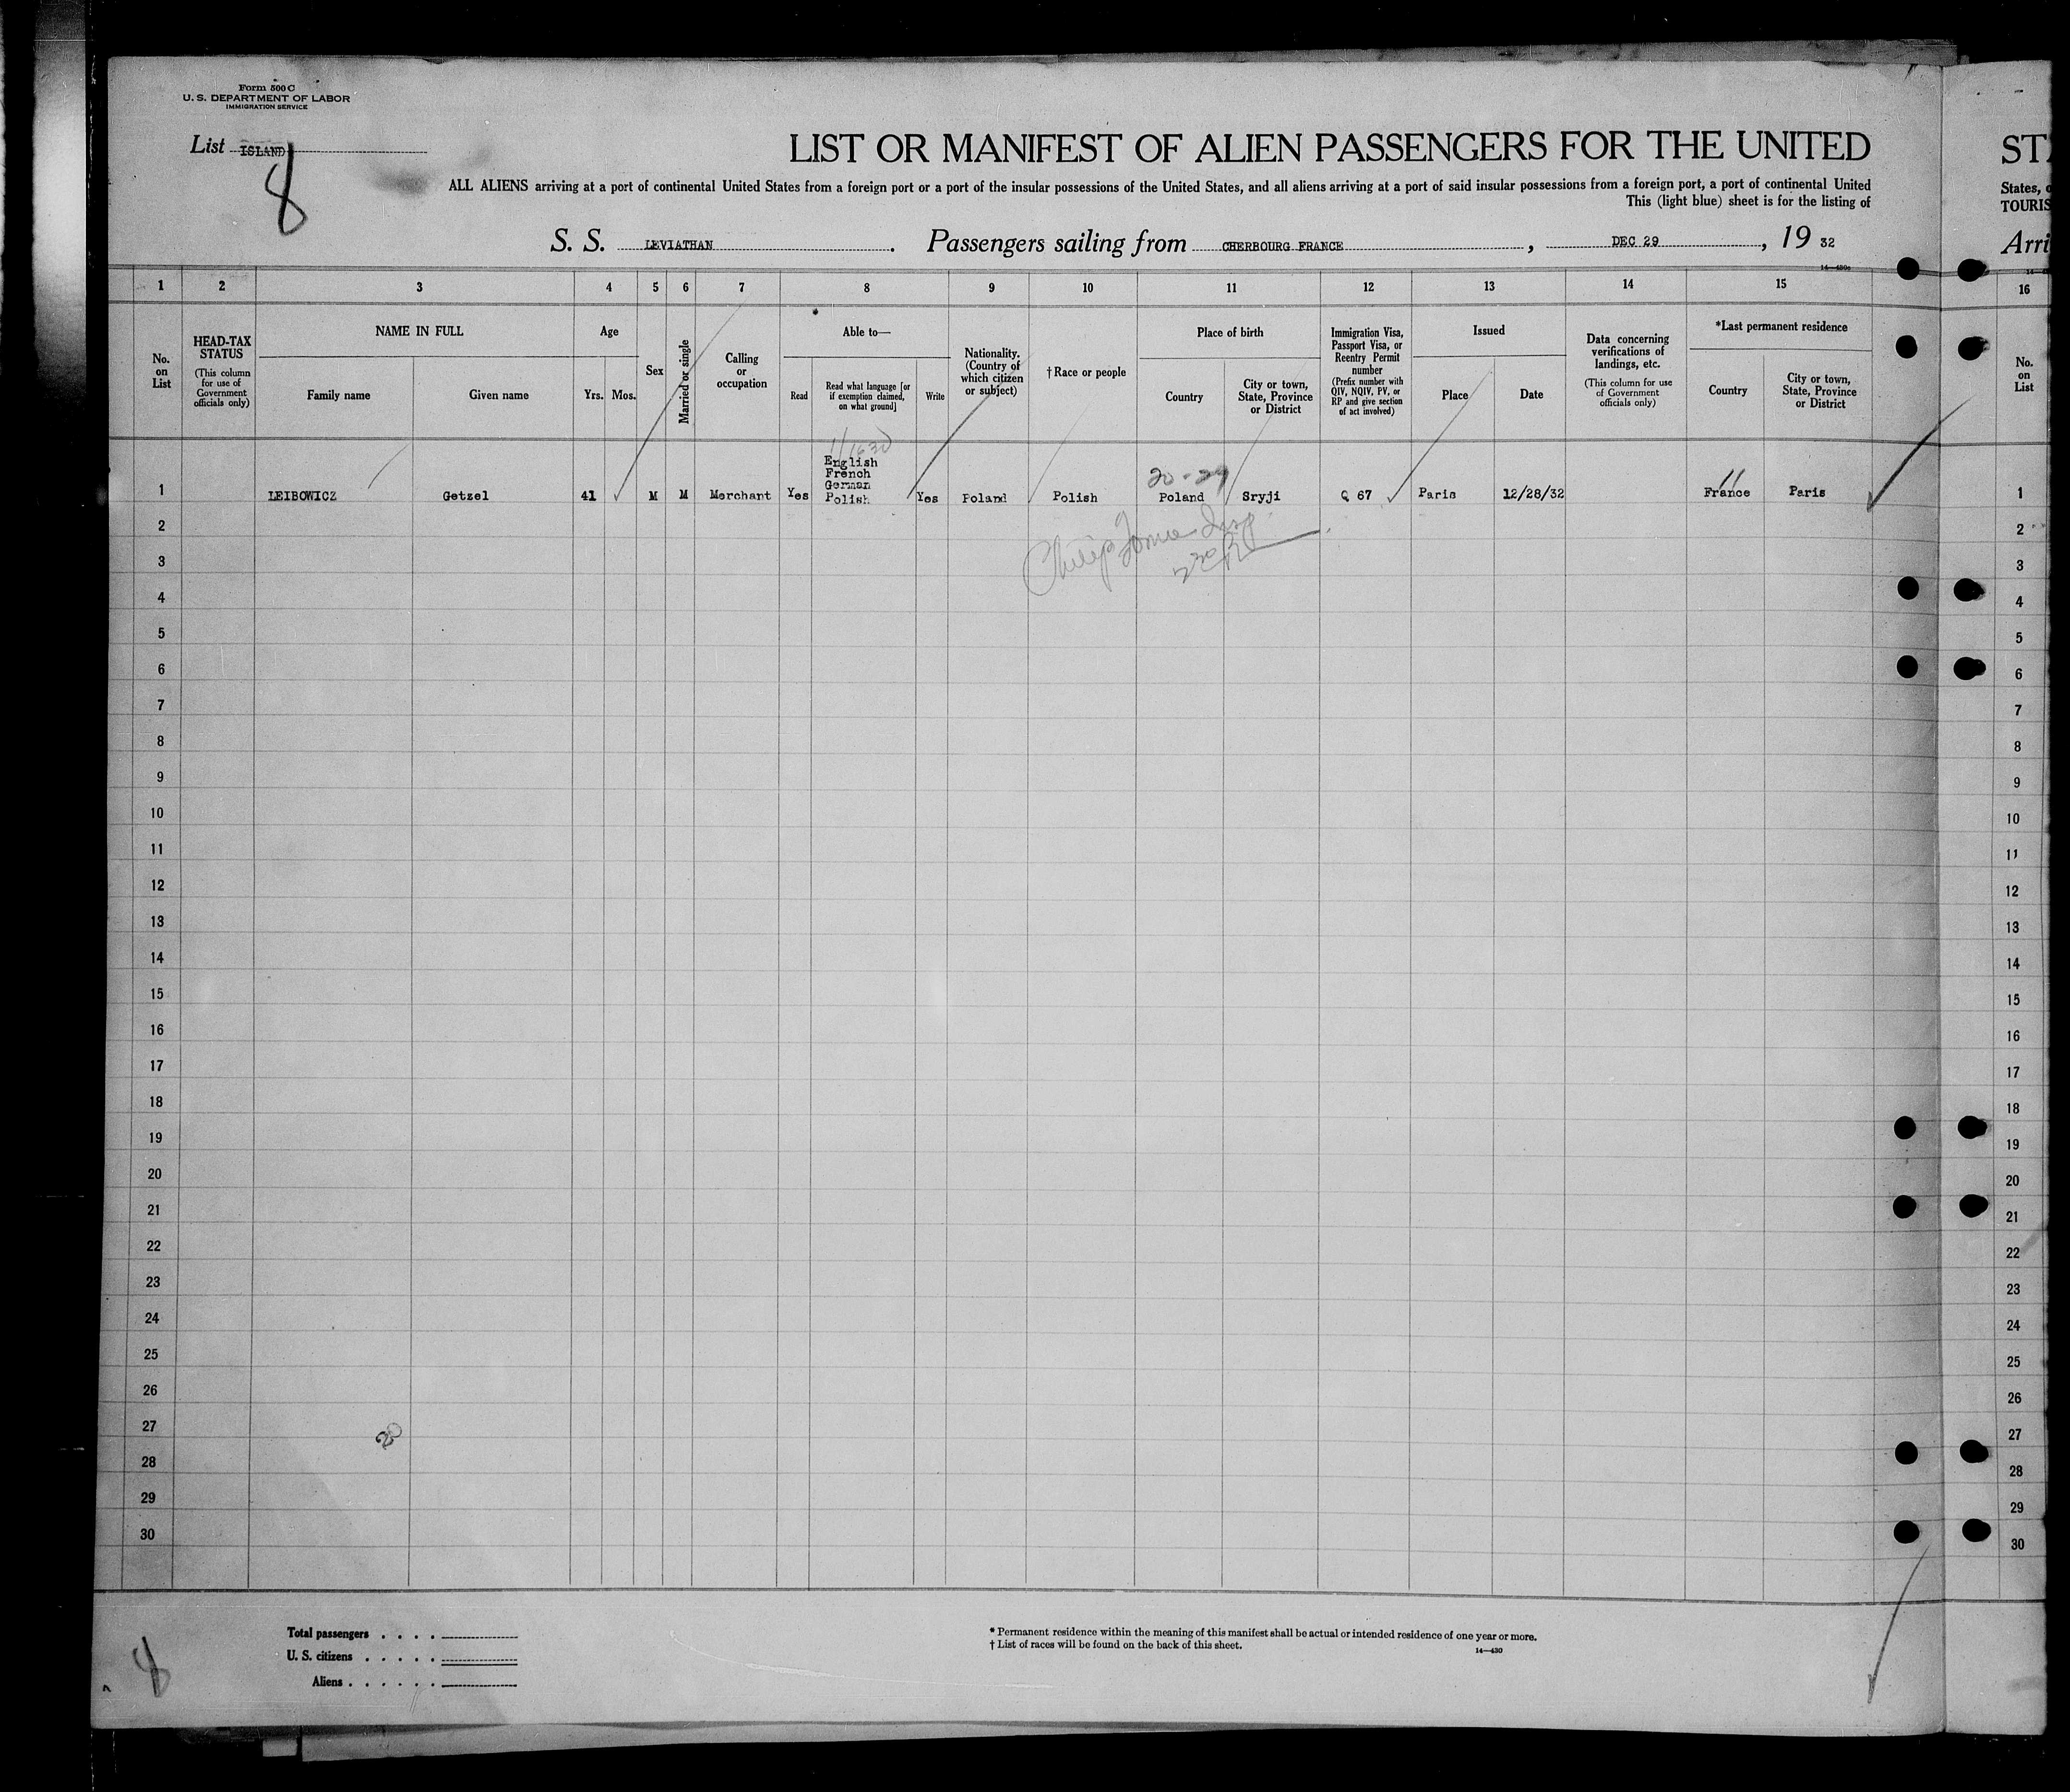 Form 500 C
U. S. DEPARTMENT OF LABOR
IMMIGRATION SERVICE
List ISLAND
8
LIST OR MANIFEST OF ALIEN PASSENGERS FOR THE UNITED
ALL ALIENS arriving at a port of continental United States from a foreign port or a port of the insular possessions of the United States, and all aliens arriving at a port of said insular possessions from a foreign port, a port of continental United
This (light blue) sheet is for the listing of
S. S. LEVIATHAN. Passengers sailing from CHERBOURG FRANCE, DEC 29, 19 32
States,
TOURIS
Arri
1 2 3 4 5 6 7 8 9 10 11 12 13 14 15 16
No. on List
HEAD-TAX STATUS
(This column for use of Government officials only)
NAME IN FULL
Family name
Given name
Age
Yrs. Mos.
Sex
Married or single
Calling or occupation
Able to—
Read
Read what language [or if exemption claimed, on what ground]
Write
Nationality. (Country of which citizen or subject)
† Race or people
Place of birth
Country
City or town, State, Province or District
Immigration Visa, Passport Visa, or Reentry Permit number
(Prefix number with QIV, NQIV, PV, or RP and give section of act involved)
Issued
Place
Date
Data concerning verifications of landings, etc.
(This column for use of Government officials only)
*Last permanent residence
Country
City or town, State, Province or District
No. on List
English
French
German
20-29
1 LEIBOWICZ Getzel 41 M M Merchant Yes Polish Yes Poland Polish Poland Sryji Q 67 Paris 12/28/32 France Paris 1
2 2
3 3
4 4
5 5
6 6
7 7
8 8
9 9
10 10
11 11
12 12
13 13
14 14
15 15
16 16
17 17
18 18
19 19
20 20
21 21
22 22
23 23
24 24
25 25
26 26
27 27
28 28
29 29
30 30
Total passengers
U. S. citizens
Aliens
* Permanent residence within the meaning of this manifest shall be actual or intended residence of one year or more.
† List of races will be found on the back of this sheet.
14—430
8